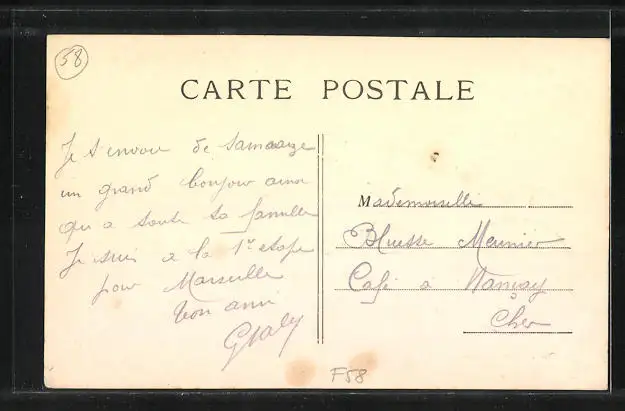 58
CARTE POSTALE
Je t'envoie de
un grand bonjour ainsi
qu'a toute ta famille
Je suis a la 1re etape
pour Marseille
ton ami
Mademoiselle
Meunier
Café a Nançay
Cher
F58